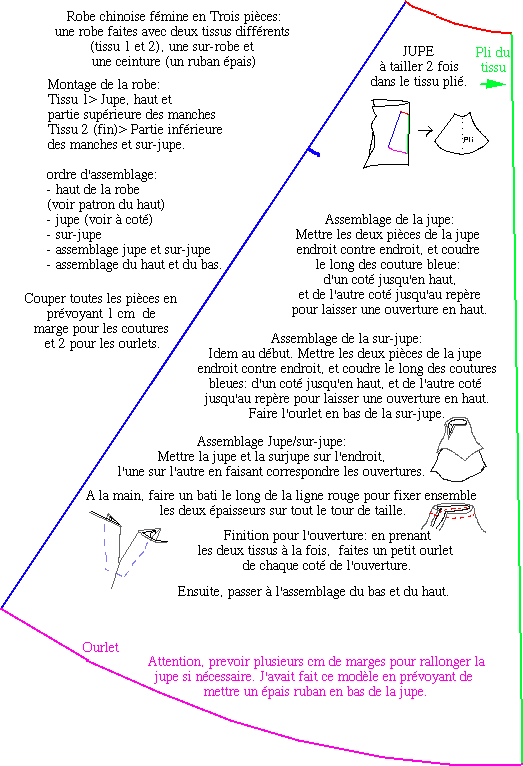 Robe chinoise fémine en Trois pièces:
une robe faites avec deux tissus différents
(tissu 1 et 2), une sur-robe et
une ceinture (un ruban épais)
Montage de la robe:
Tissu 1> Jupe, haut et
partie supérieure des manches
Tissu 2 (fin)> Partie inférieure
des manches et sur-jupe.
ordre d'assemblage:
- haut de la robe
(voir patron du haut)
- jupe (voir à coté)
- sur-jupe
- assemblage jupe et sur-jupe
- assemblage du haut et du bas.
Couper toutes les pièces en
prévoyant 1 cm de
marge pour les coutures
et 2 pour les ourlets.
JUPE
à tailler 2 fois
dans le tissu plié.
Pli du
tissu
Pli
Assemblage de la jupe:
Mettre les deux pièces de la jupe
endroit contre endroit, et coudre
le long des couture bleue:
d'un coté jusqu'en haut,
et de l'autre coté jusqu'au repère
pour laisser une ouverture en haut.
Assemblage de la sur-jupe:
Idem au début. Mettre les deux pièces de la jupe
endroit contre endroit, et coudre le long des coutures
bleues: d'un coté jusqu'en haut, et de l'autre coté
jusqu'au repère pour laisser une ouverture en haut.
Faire l'ourlet en bas de la sur-jupe.
Assemblage Jupe/sur-jupe:
Mettre la jupe et la surjupe sur l'endroit,
l'une sur l'autre en faisant correspondre les ouvertures.
A la main, faire un bati le long de la ligne rouge pour fixer ensemble
les deux épaisseurs sur tout le tour de taille.
Finition pour l'ouverture: en prenant
les deux tissus à la fois, faites un petit ourlet
de chaque coté de l'ouverture.
Ensuite, passer à l'assemblage du bas et du haut.
Ourlet
Attention, prevoir plusieurs cm de marges pour rallonger la
jupe si nécessaire. J'avait fait ce modèle en prévoyant de
mettre un épais ruban en bas de la jupe.